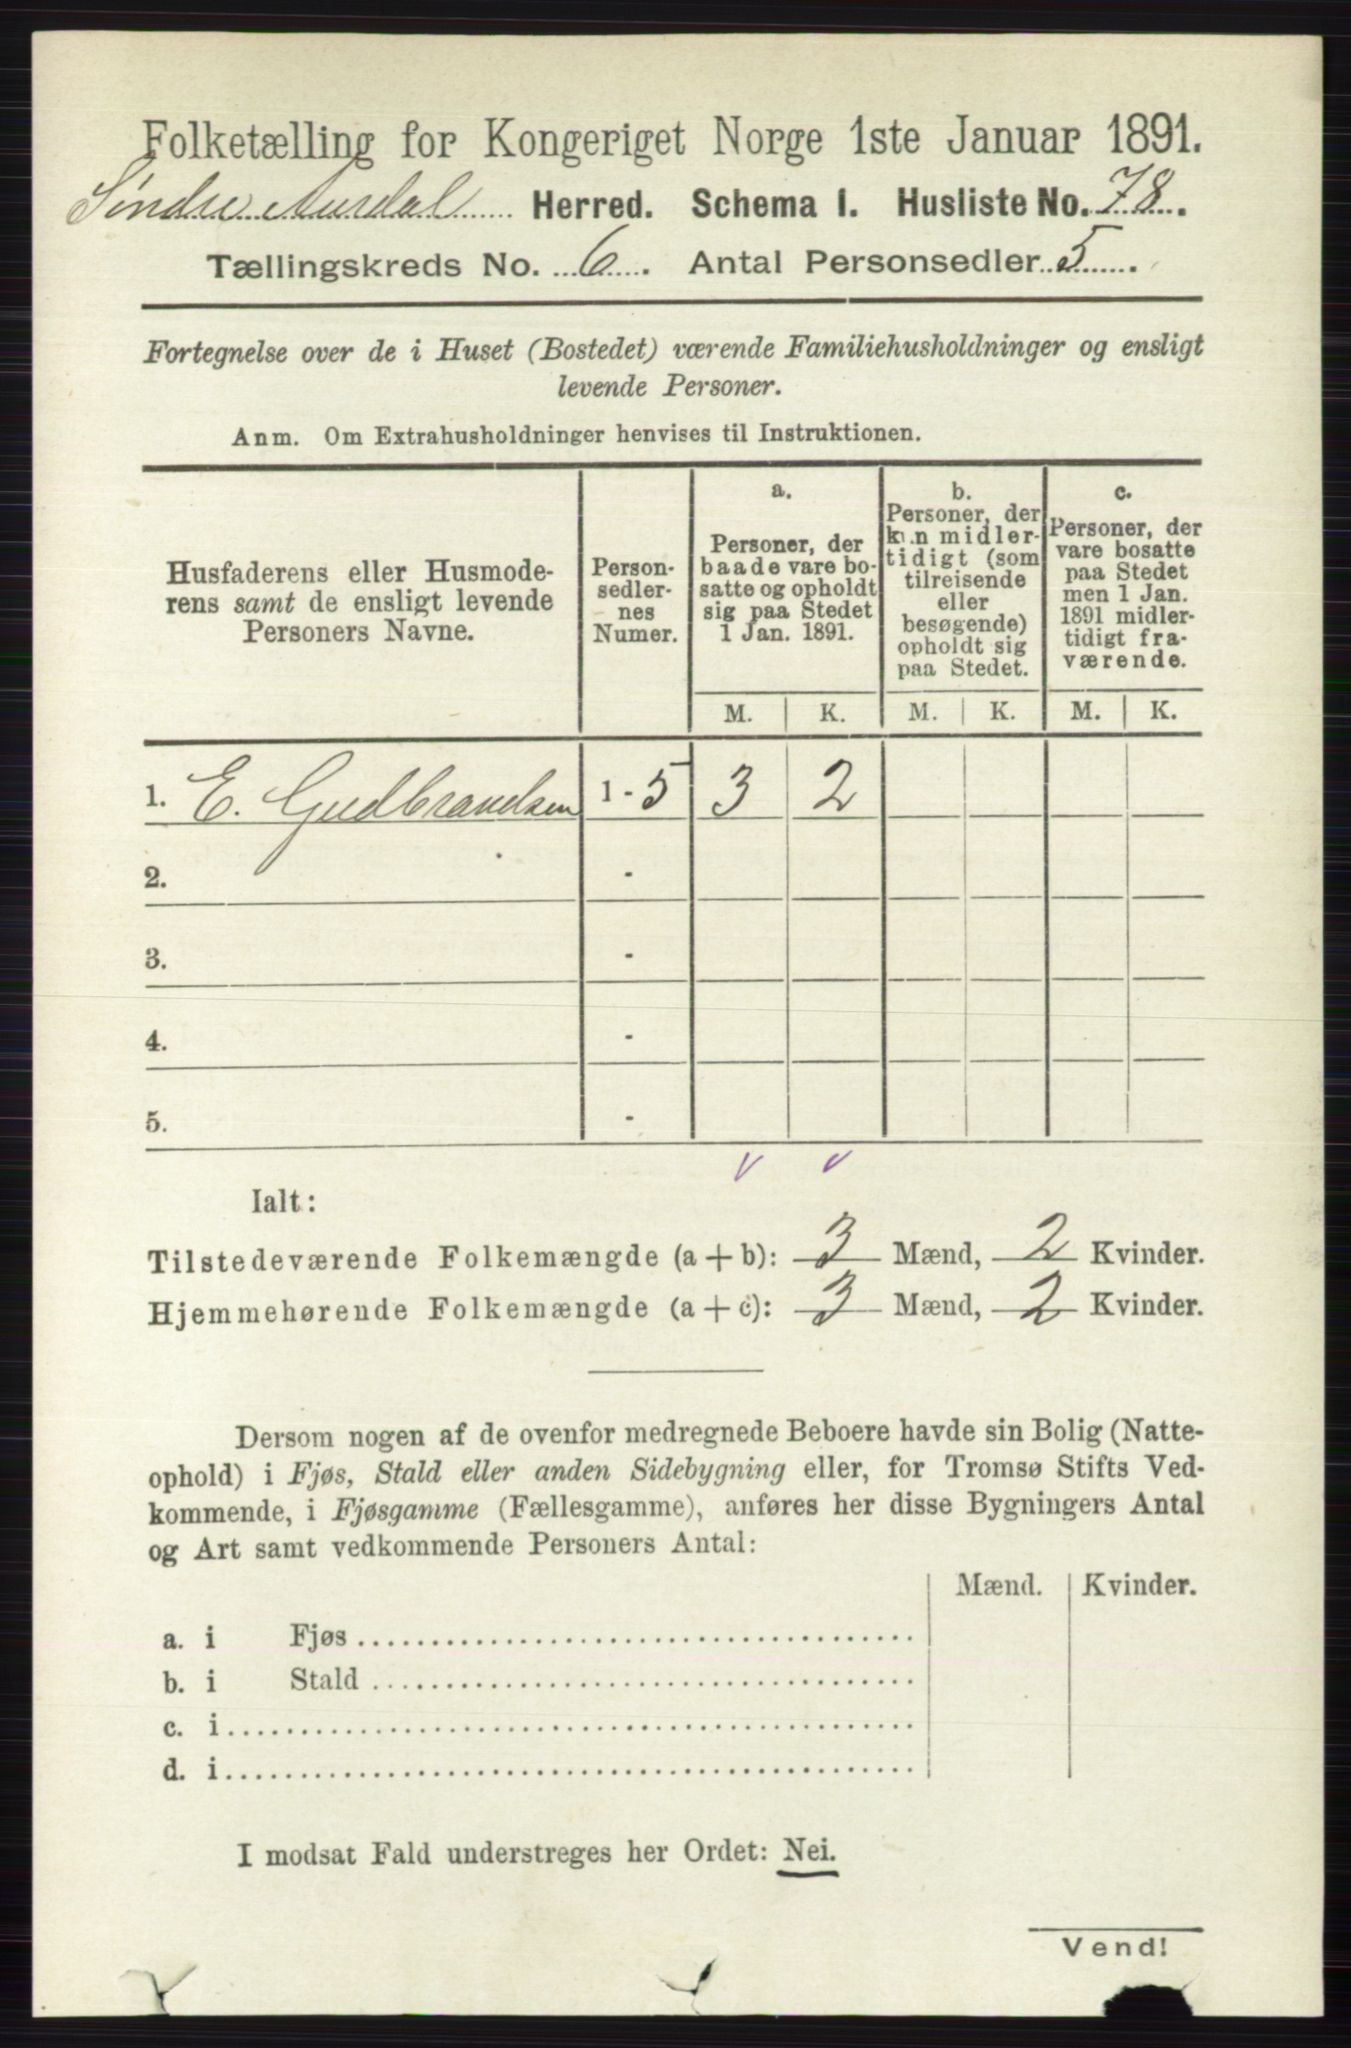 Folketælling for Kongeriget Norge 1ste Januar 1891.
Søndre Aurdal Herred. Schema I. Husliste No. 78.
Tællingskreds No. 6. Antal Personsedler 5.
Fortegnelse over de i Huset (Bostedet) værende Familiehusholdninger og ensligt
levende Personer.
Anm. Om Extrahusholdninger henvises til Instruktionen.
Husfaderens eller Husmode-
rens samt de ensligt levende
Personers Navne.
Person-
sedler-
nes
Numer.
a.
Personer, der
baade vare bo-
satte og opholdt
sig paa Stedet
1 Jan. 1891.
b.
Personer, der
kun midler-
tidigt (som
tilreisende
eller
besøgende)
opholdt sig
paa Stedet.
c.
Personer, der
vare bosatte
paa Stedet
men 1 Jan.
1891 midler-
tidigt fra-
værende.
M. K. M. K. M. K.
1. E. Gudbrandsen 1 - 5 3 2
2. -
3. -
4. -
5. -
Ialt:
Tilstedeværende Folkemængde (a + b): 3 Mænd, 2 Kvinder.
Hjemmehørende Folkemængde (a + c): 3 Mænd, 2 Kvinder.
Dersom nogen af de ovenfor medregnede Beboere havde sin Bolig (Natte-
ophold) i Fjøs, Stald eller anden Sidebygning eller, for Tromsø Stifts Ved-
kommende, i Fjøsgamme (Fællesgamme), anføres her disse Bygningers Antal
og Art samt vedkommende Personers Antal:
Mænd. Kvinder.
a. i Fjøs
b. i Stald
c. i
d. i
I modsat Fald understreges her Ordet: Nei.
Vend!